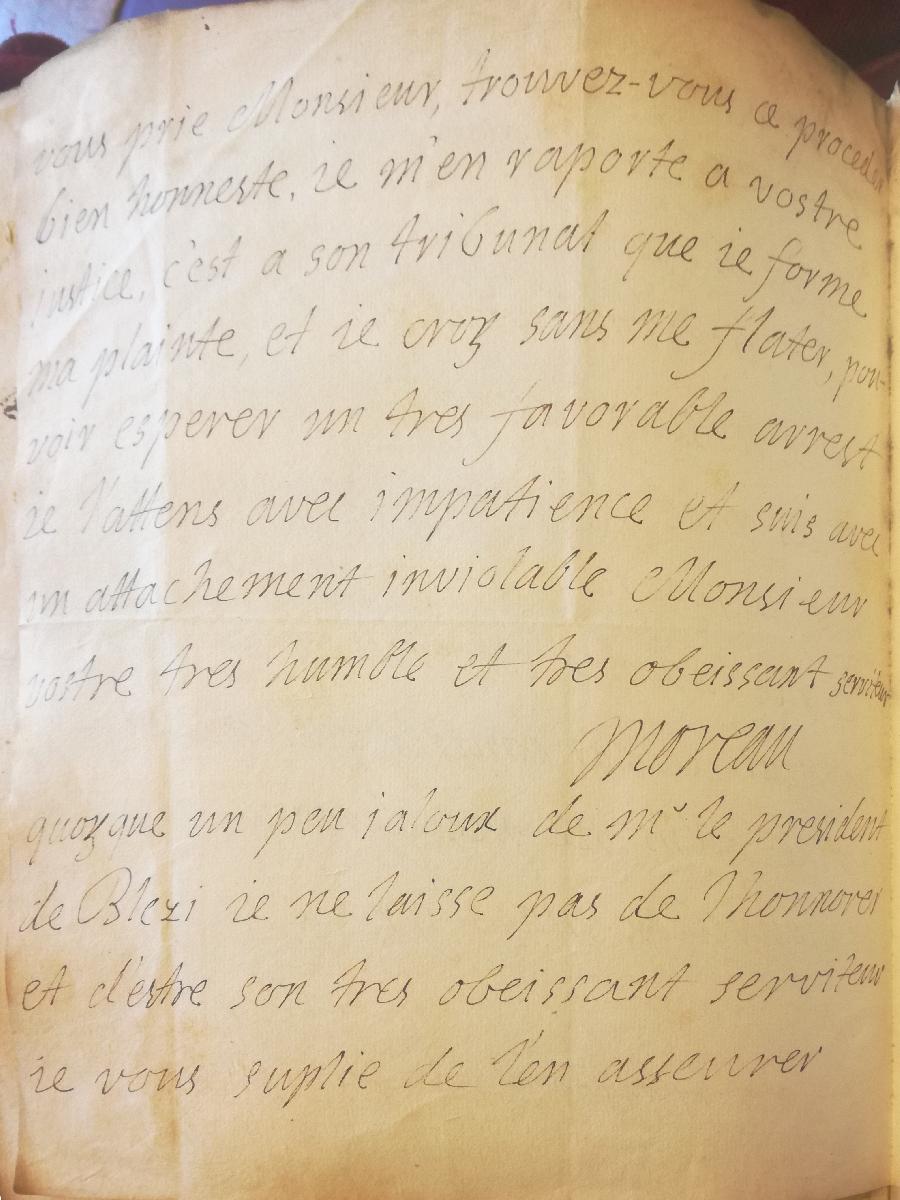 vous prie Monsieur, trouvez-vous ce procedé
bien honneste, ie m'en raporte a vostre
justice, c'est a son tribunal que ie forme
ma plainte, et ie croy sans me flater, pou-
voir esperer un tres favorable arrest
ie l'attens avec impatience et suis avec
un attachement inviolable Monsieur
vostre tres humble et tres obeissant serviteur
Moreau
quoyque un peu ialoux de mr le president
de Blezi ie ne laisse pas de l'honnorer
et d'estre son tres obeissant serviteur
ie vous suplie de l'en asseurer